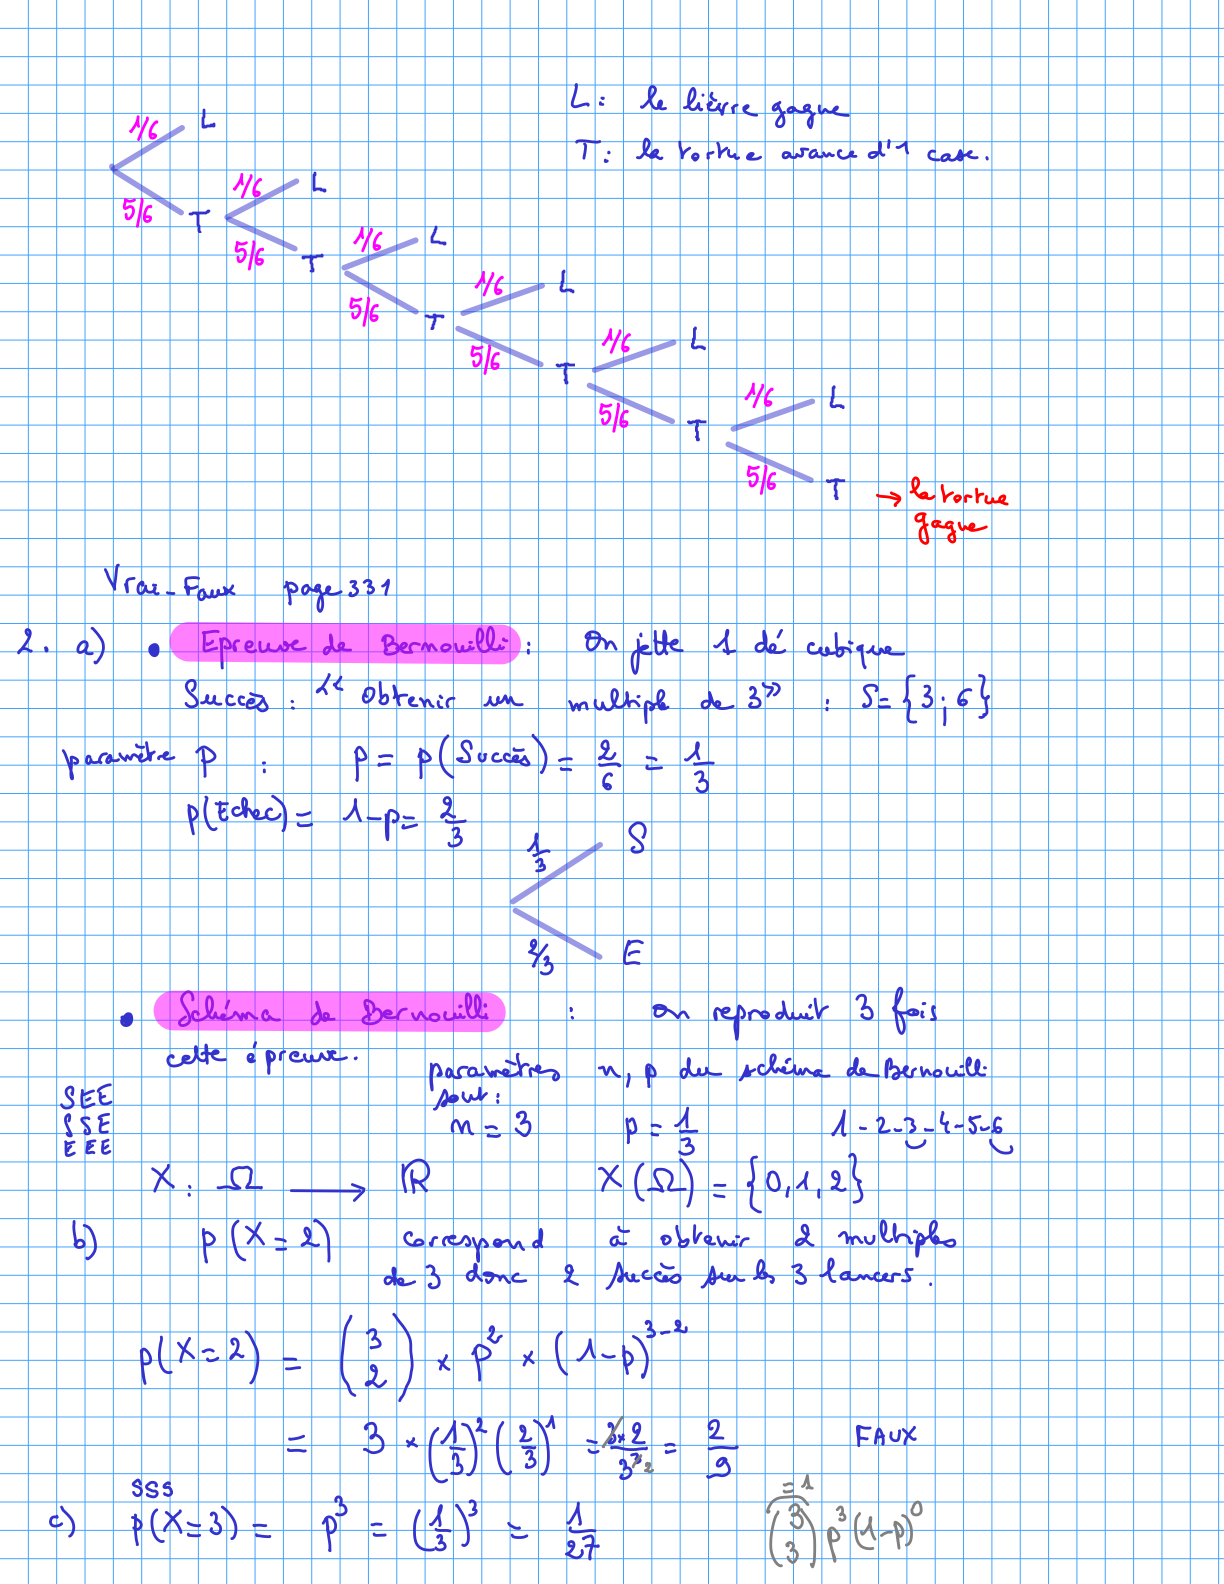 L : le lièvre gagne
T : la tortue avance d'1 case.
1/6 L
5/6 T
1/6 L
5/6 T
1/6 L
5/6 T
1/6 L
5/6 T
1/6 L
5/6 T
1/6 L
5/6 T → la tortue
gagne
Vrai-Faux page 331
2. a) • Epreuve de Bernouilli : On jette 1 dé cubique
Succès : « Obtenir un multiple de 3 » : S = {3 ; 6}
paramètre p : p = p(Succès) = 2/6 = 1/3
p(Echec) = 1-p = 2/3
1/3 S
2/3 E
• Schéma de Bernouilli : On reproduit 3 fois
cette épreuve.
paramètres n, p du schéma de Bernouilli
sont :
SEE
SSE
EEE
n = 3 p = 1/3 1-2-3-4-5-6
X : Ω → ℝ X(Ω) = {0, 1, 2}
b) p(X=2) correspond à obtenir 2 multiples
de 3 donc 2 succès sur les 3 lancers.
p(X=2) = (3 2) × p² × (1-p)³⁻²
= 3 × (1/3)² (2/3)¹ = 3×2/3³ ² = 2/9 FAUX
SSS
c) p(X=3) = p³ = (1/3)³ = 1/27
=1
(3 3) p³ (1-p)⁰